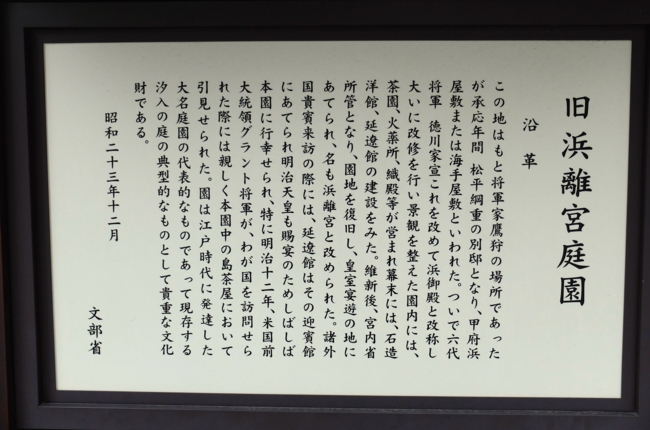 旧浜離宮庭園
沿革
この地はもと将軍家鷹狩の場所であった
が承応年間 松平綱重の別邸となり、甲府浜
屋敷または海手屋敷といわれた。ついで六代
将軍 徳川家宣これを改めて浜御殿と改称し
大いに改修を行い景観を整えた園内には、
茶園、火薬所、織殿等が営まれ幕末には、石造
洋館・延遼館の建設をみた。維新後、宮内省
所管となり、園地を復旧し、皇室宴遊の地に
あてられ、名も浜離宮と改められた。諸外
国貴賓来訪の際には、延遼館はその迎賓館
にあてられ明治天皇も賜宴のためしばしば
本園に行幸せられ、特に明治十二年、米国前
大統領グラント将軍が、わが国を訪問せら
れた際には親しく本園中の島茶屋において
引見せられた。園は江戸時代に発達した
大名庭園の代表的なものであって現存する
汐入の庭の典型的なものとして貴重な文化
財である。
昭和二十三年十二月
文部省